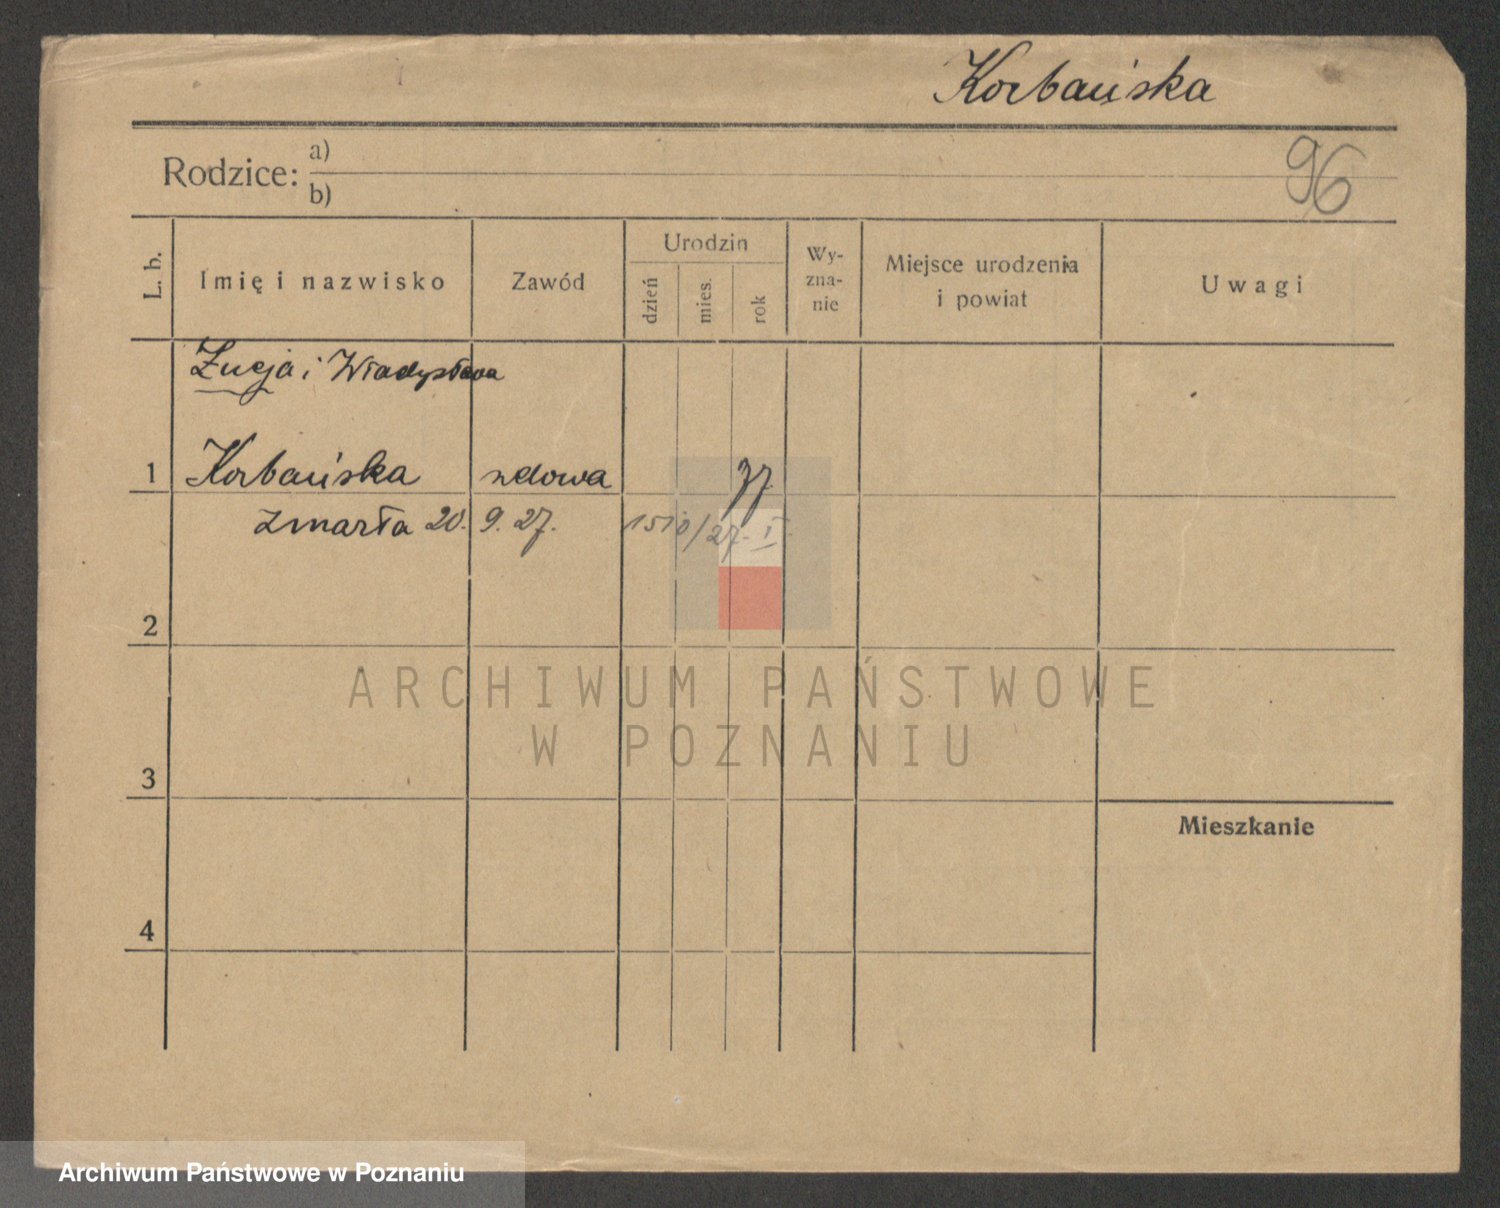 Korbańska
Rodzice: a)
b)
96
L. b. Imię i nazwisko Zawód Urodzin dzień mies. rok Wy-zna-nie Miejsce urodzenia i powiat Uwagi
Łucja i Władysława
1 Korbańska wdowa 77
zmarła 20. 9. 27. 1510/27. I.
2
ARCHIWUM PAŃSTWOWE
W POZNANIU
3
Mieszkanie
4
Archiwum Państwowe w Poznaniu